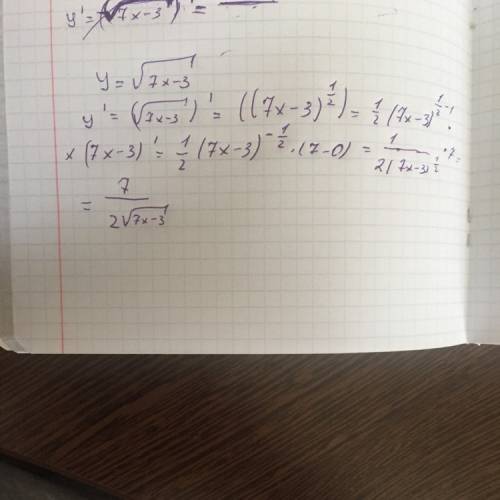 y' = (√7x-3)' =
y = √7x-3
y' = (√7x-3)' = ((7x-3)^{1/2}) = 1/2 (7x-3)^{1/2 -1} ·
× (7x-3)' = 1/2 (7x-3)^{-1/2} · (7-0) = 1/2(7x-3)^{1/2} · 7 =
= 7/2√7x-3